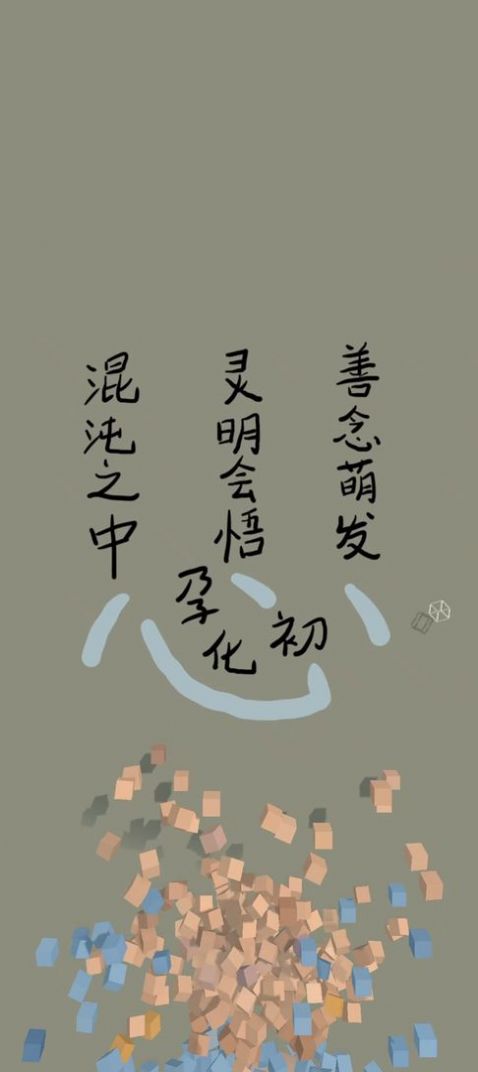 混沌之中
灵明会悟
善念萌发
孕化初心